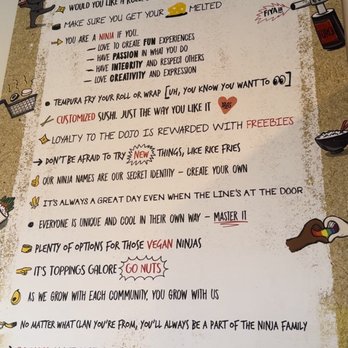 WOULD YOU LIKE A ROLL
FIYAH
MAKE SURE YOU GET YOUR MELTED
YOU ARE A NINJA IF YOU..
– LOVE TO CREATE FUN EXPERIENCES
– HAVE PASSION IN WHAT YOU DO
– HAVE INTEGRITY AND RESPECT OTHERS
– LOVE CREATIVITY AND EXPRESSION
TEMPURA FRY YOUR ROLL OR WRAP [UH, YOU KNOW YOU WANT TO]
CUSTOMIZED SUSHI. JUST THE WAY YOU LIKE IT
LOYALTY TO THE DOJO IS REWARDED WITH FREEBIES
DON'T BE AFRAID TO TRY NEW THINGS, LIKE RICE FRIES
OUR NINJA NAMES ARE OUR SECRET IDENTITY – CREATE YOUR OWN
IT'S ALWAYS A GREAT DAY EVEN WHEN THE LINE'S AT THE DOOR
EVERYONE IS UNIQUE AND COOL IN THEIR OWN WAY – MASTER IT
PLENTY OF OPTIONS FOR THOSE VEGAN NINJAS
IT'S TOPPINGS GALORE GO NUTS
AS WE GROW WITH EACH COMMUNITY, YOU GROW WITH US
NO MATTER WHAT CLAN YOU'RE FROM, YOU'LL ALWAYS BE A PART OF THE NINJA FAMILY